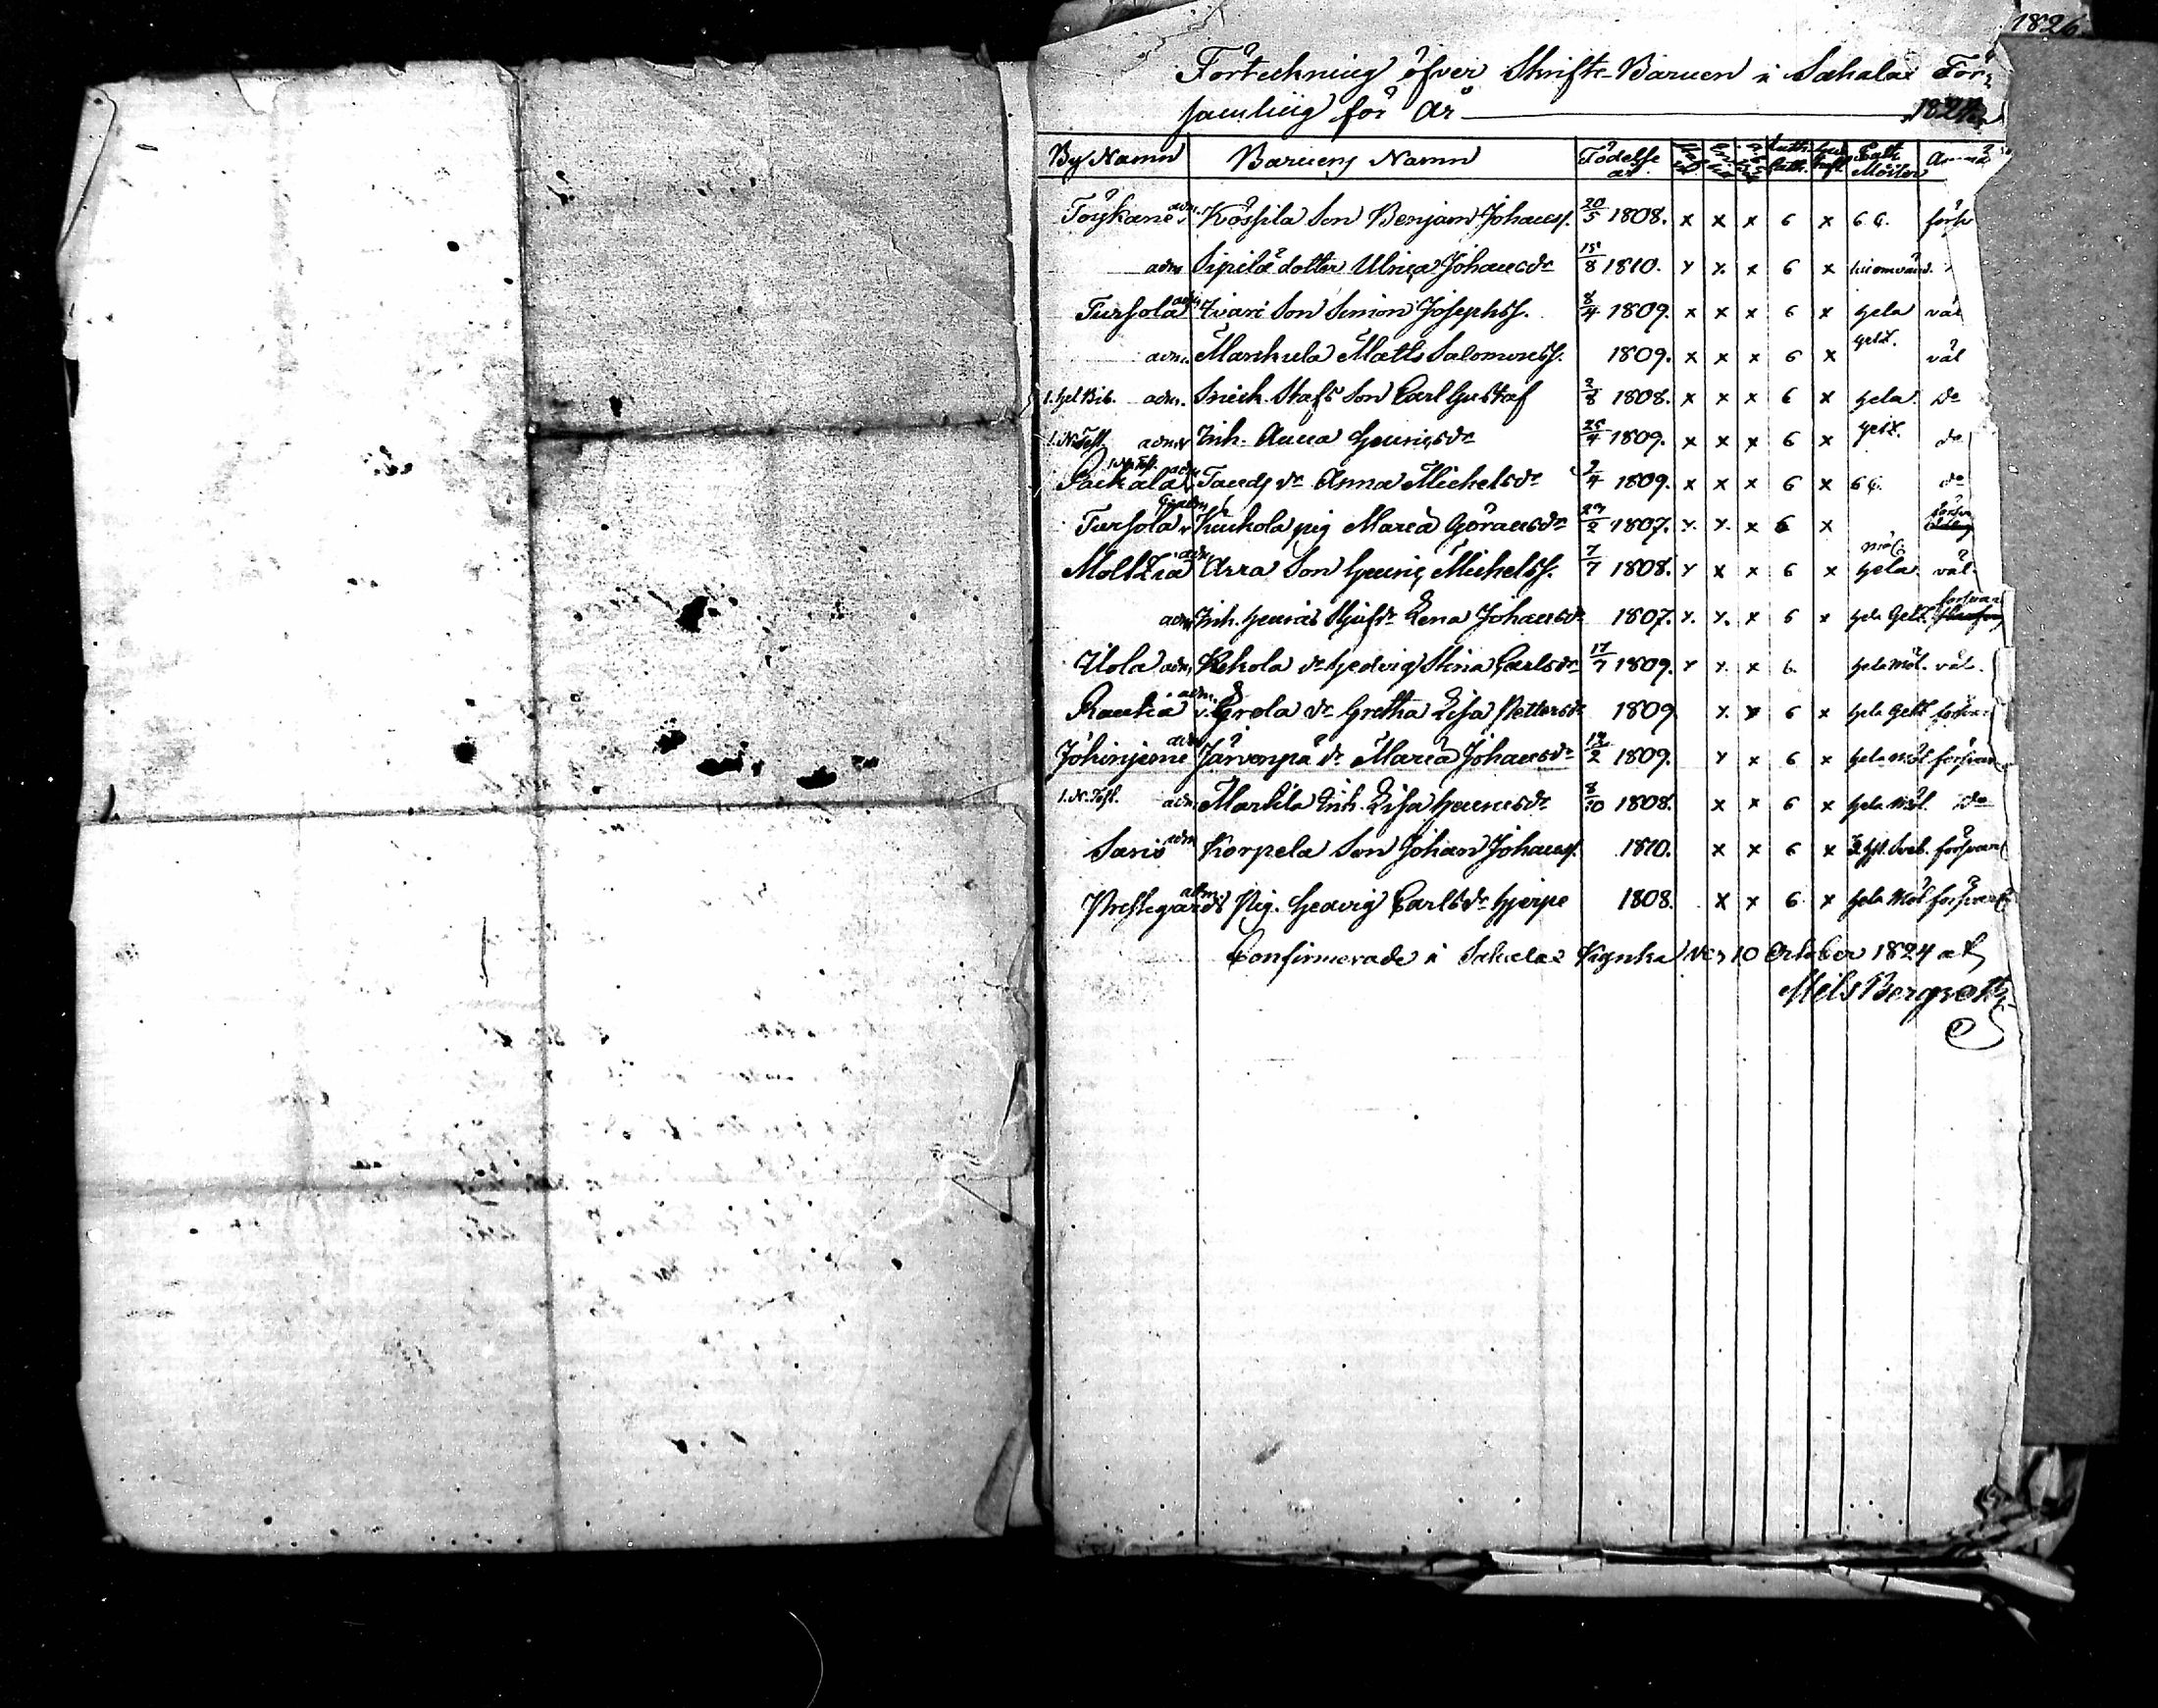 1826
Förteckning öfver Skrifte-Barnen i Sahalax För-
samling för År 1824
By Namn Barnens Namn Födelse år Luth. Cath. Möster
Töykane adm. Kössila Son Benjam Johanss. 20/5 1808. x x x 6 x 6 C. förs
adm Sipilä dotter Ulrica Johansdr 15/8 1810. x x. x 6 x
Tursola adm Iivari Son Simon Josephss. 8/4 1809. x x x 6 x hela väl
adm. Markula Matts Salomonss. 1809. x x x 6 x gesz. väl
1. hel Bib. adm. Snick. Stafs Son Carl Gustaf 2/8 1808. x x x 6 x hela do
1. N. Test. adm Inh. Anna Henricsdr 25/4 1809. x x x 6 x gesz. do
1. N. Test. adm
Pakkala Tands dr Anna Michelsdr 2/4 1809. x x x 6 x 6 C. do
Tursola Kuukola pig Maria Göransdr 27/2 1807. x x. x 6 x
Moltzia adm Arra Son Henric Michelss. 7/7 1808. x x x 6 x möl. hela väl.
adm Inh. Henrics Stjufdr Lena Johansdr 1807. x. x. x 6 x hela Gesz. försvar
Ilola adm Kekola dr Hedvig Stina Carlsdr 17/7 1809. x x. x 6. hela möl. väl.
Rautia adm. Erola dr Gretha Lisa Pettersdr 1809 x. x 6 x hela Gesz försvar
Johinjemi adm Järvenpä dr Maria Johansdr 12/2 1809. x x 6 x hela möl försvar
1. N. Test. adm Markla Inh. Lisa Henricsdr 8/10 1808. x x 6 x hela Möl. do
Saris adm Korpela Son Johan Johanss. 1810. x x 6 x försvarl
Prestegårds adm. Pig. Hedvig Carlsdr Hjerpe 1808. x x 6 x hela Möl försvarl
Confirmerade i Sahalax Kyrka den 10 October 1824 af
Nils Bergroth